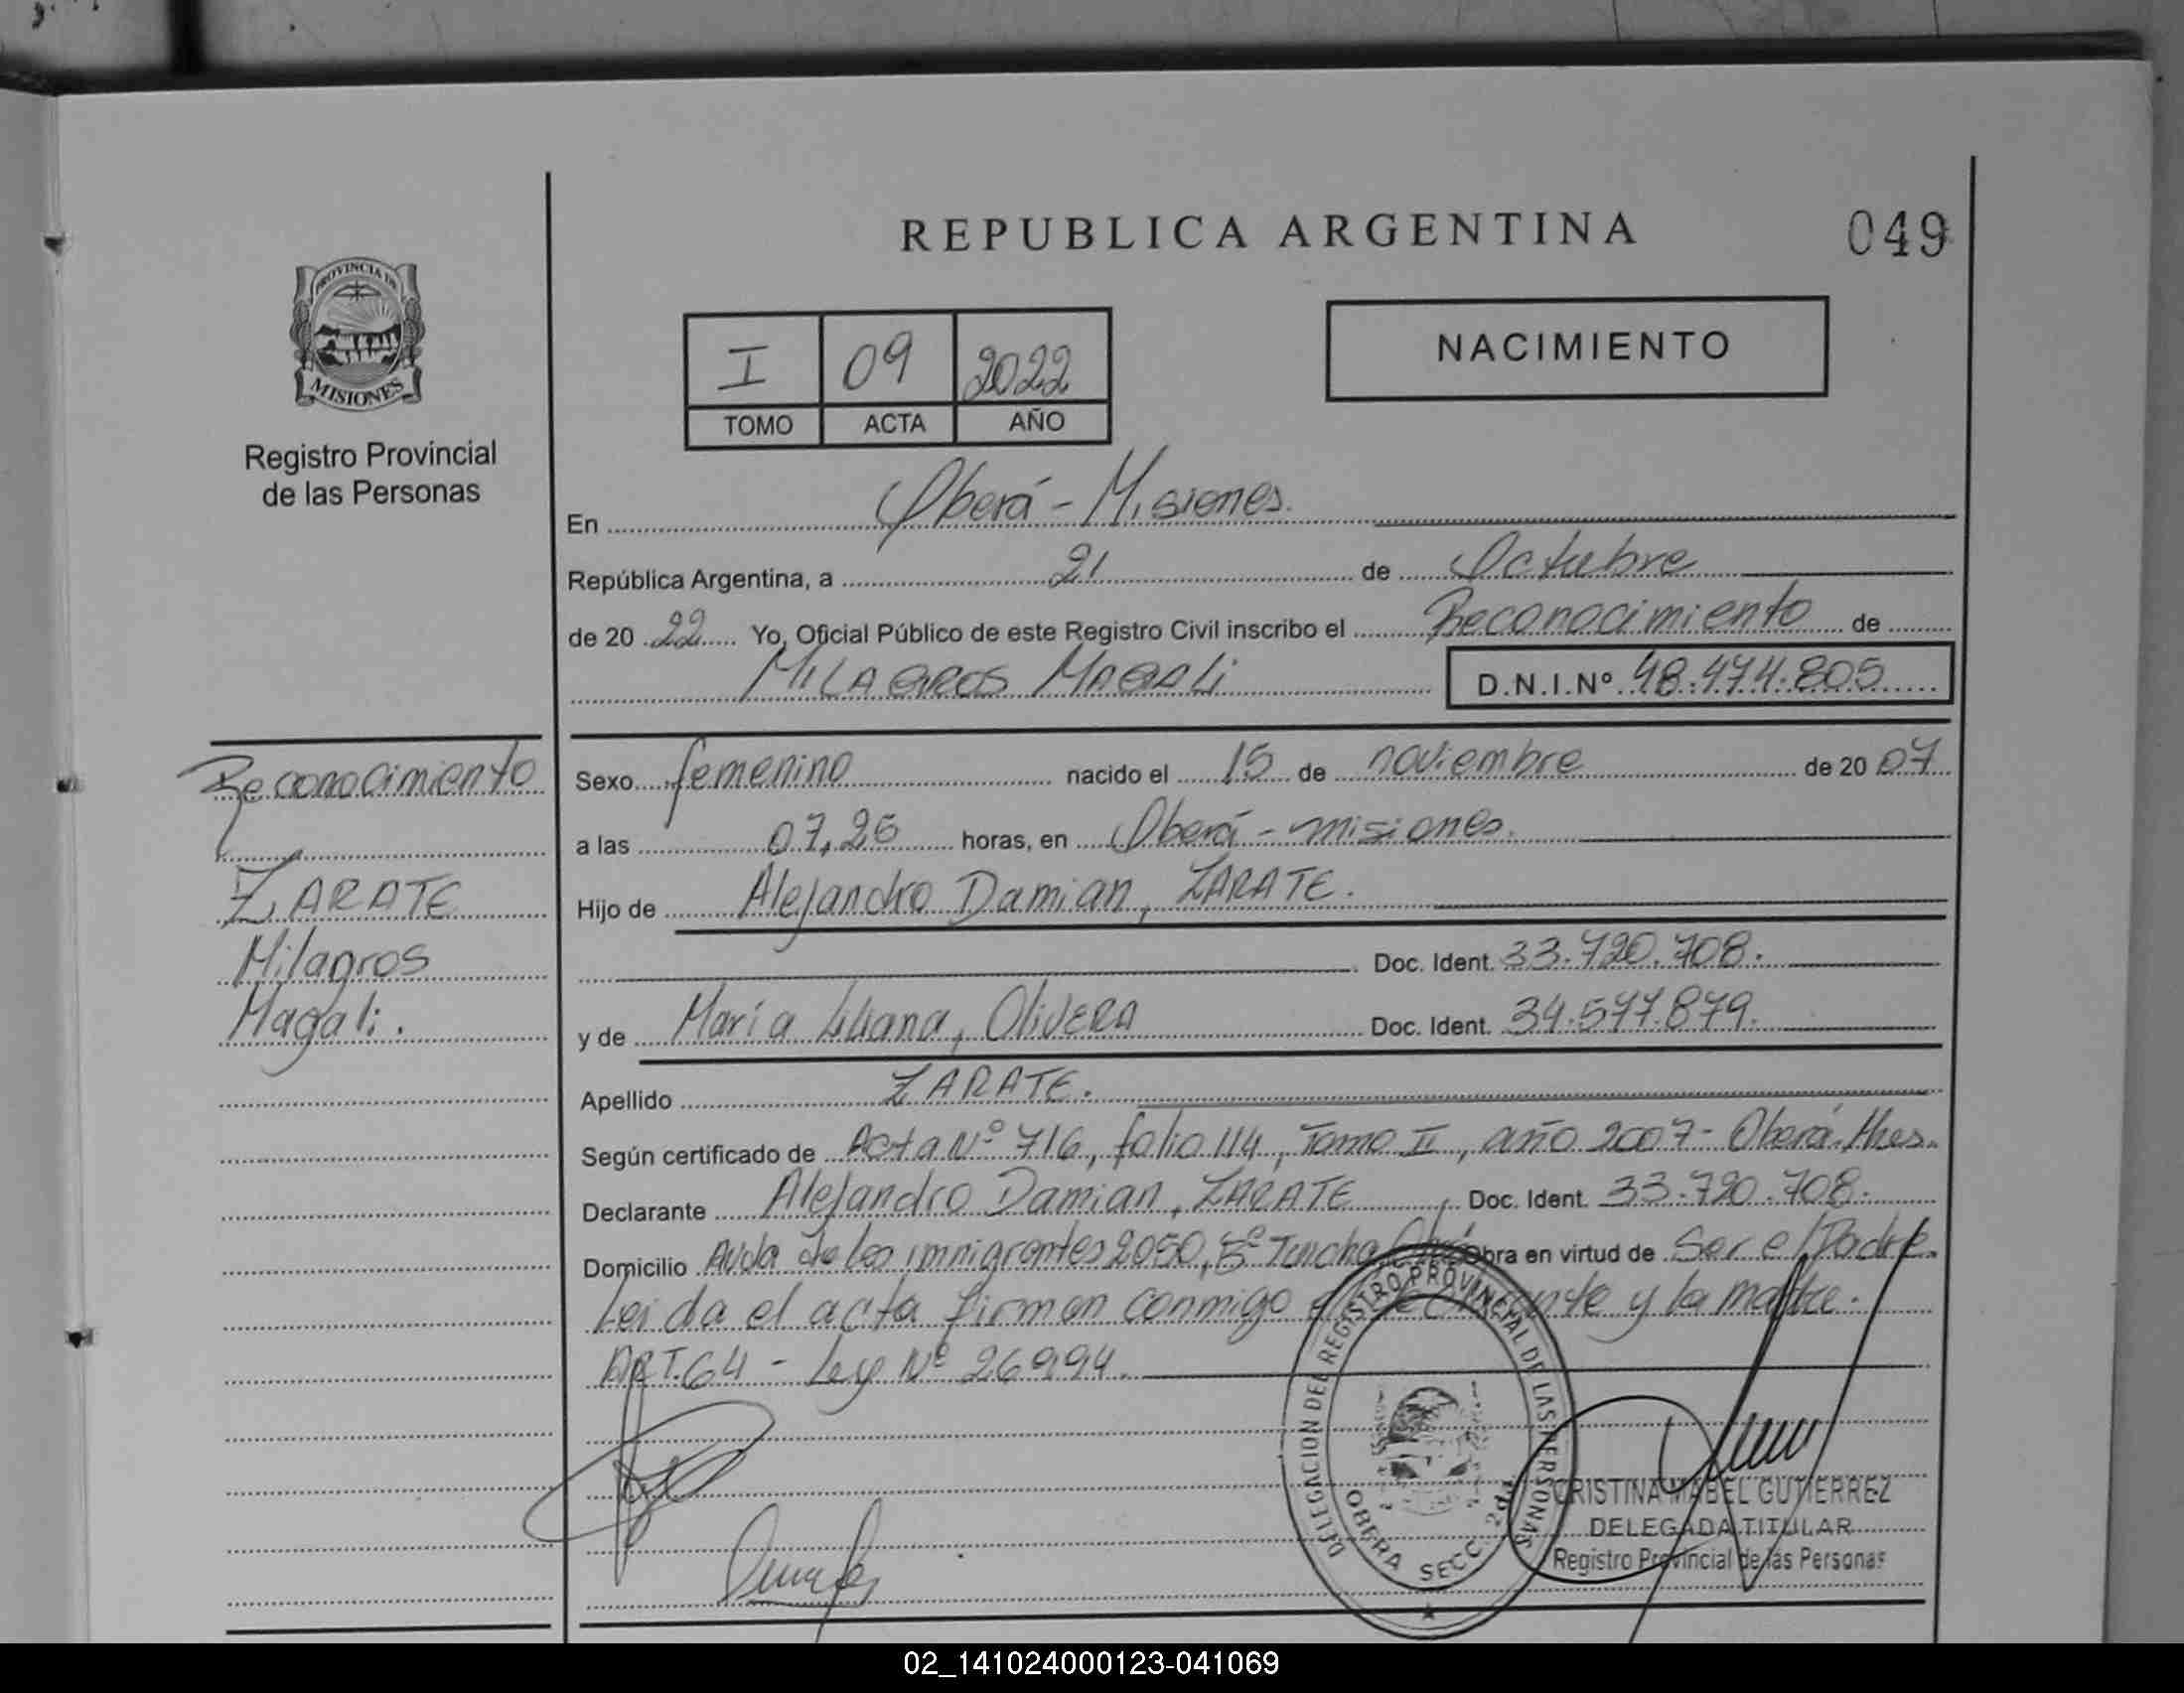 REPUBLICA ARGENTINA
049
PROVINCIA DE
MISIONES
Registro Provincial
de las Personas
I 09 2022
TOMO ACTA AÑO
NACIMIENTO
En Oberá - Misiones.
República Argentina, a 21 de Octubre
de 20 22 Yo, Oficial Público de este Registro Civil inscribo el Reconocimiento de
MILAGROS MAGALi D.N.I.Nº 48.474.805
Reconocimiento
ZARATE
Milagros
Magali.
Sexo femenino nacido el 15 de noviembre de 20 07
a las 07,26 horas, en Oberá - misiones.
Hijo de Alejandro Damian, ZARATE.
Doc. Ident. 33.720.708.
y de María Liliana, OliVERA Doc. Ident. 34.577.879.
Apellido ZARATE.
Según certificado de Acta Nº 716, folio 114, Tomo II, año 2007 - Oberá. Mnes.
Declarante Alejandro Damian, ZARATE Doc. Ident. 33.720.708.
Domicilio Avda de los inmigrantes 2050, Obra en virtud de Ser el Padre.
Leida el acta firman conmigo el declarante y la madre.
ART.64 - Ley Nº 26994.
DELEGACION DEL REGISTRO PROVINCIAL DE LAS PERSONAS
OBERA SECC. 2da.
CRISTINA MABEL GUTIERREZ
DELEGADA TITULAR
Registro Provincial de las Personas
02_141024000123-041069